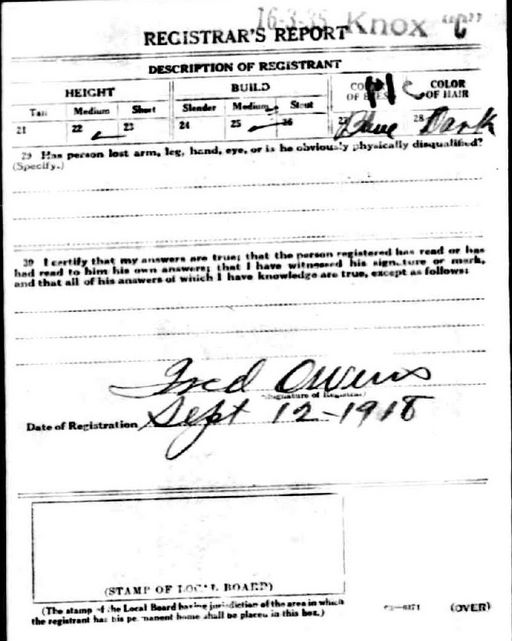 16-3-35 Knox "C"
REGISTRAR'S REPORT
DESCRIPTION OF REGISTRANT
HEIGHT BUILD COLOR OF EYES COLOR OF HAIR
Tall Medium Short Slender Medium Stout
21 22 23 24 25 26 27 Blue 28 Dark
29 Has person lost arm, leg, hand, eye, or is he obviously physically disqualified?
(Specify.)
30 I certify that my answers are true; that the person registered has read or has
had read to him his own answers; that I have witnessed his signature or mark,
and that all of his answers of which I have knowledge are true, except as follows:
Fred Owens
(Signature of Registrar)
Date of Registration Sept 12-1918
(STAMP OF LOCAL BOARD)
(The stamp of the Local Board having jurisdiction of the area in which
the registrant has his permanent home shall be placed in this box.)
(OVER)